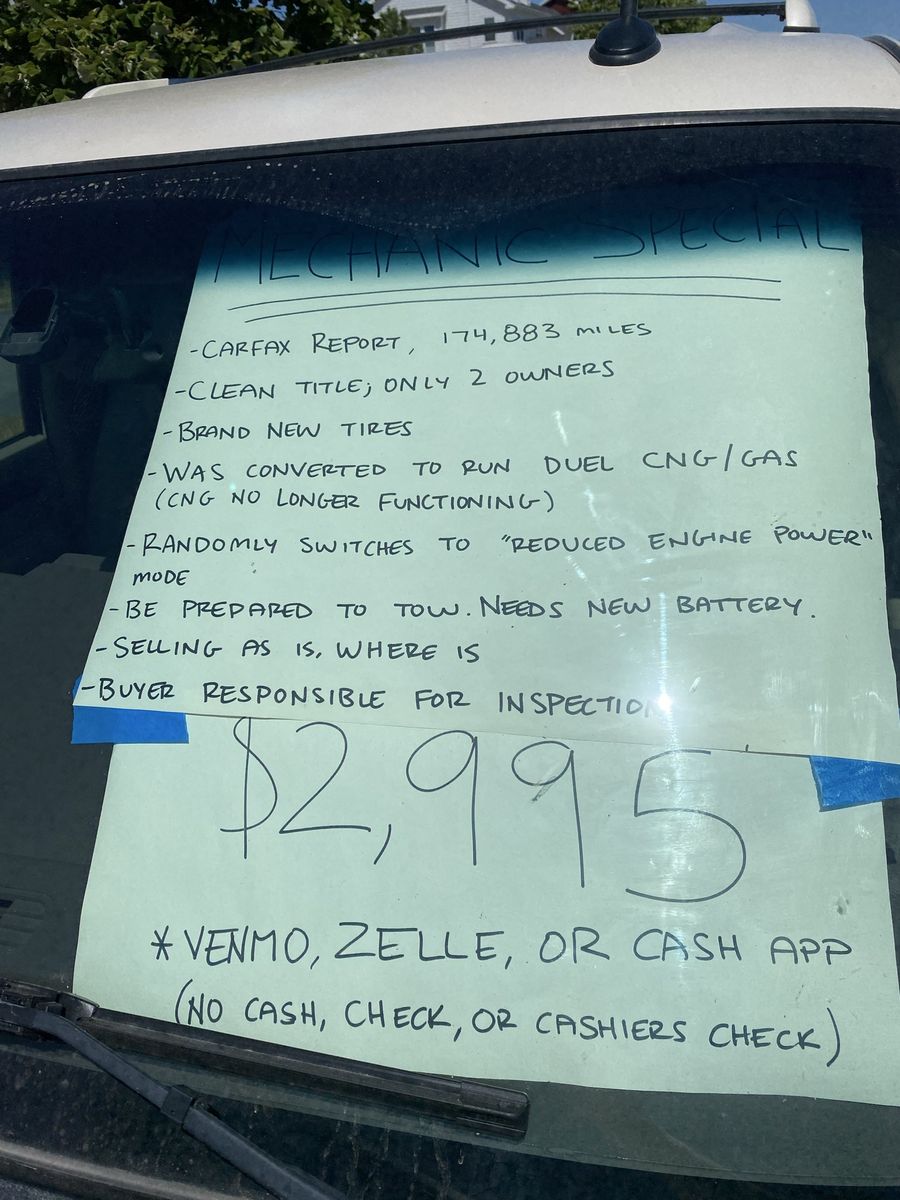 MECHANIC SPECIAL
-CARFAX REPORT, 174,883 MILES
-CLEAN TITLE; ONLY 2 OWNERS
-BRAND NEW TIRES
-WAS CONVERTED TO RUN DUEL CNG/GAS
(CNG NO LONGER FUNCTIONING)
-RANDOMLY SWITCHES TO "REDUCED ENGINE POWER"
MODE
-BE PREPARED TO TOW. NEEDS NEW BATTERY.
-SELLING AS IS, WHERE IS
-BUYER RESPONSIBLE FOR INSPECTION
$2,995
*VENMO, ZELLE, OR CASH APP
(NO CASH, CHECK, OR CASHIERS CHECK)